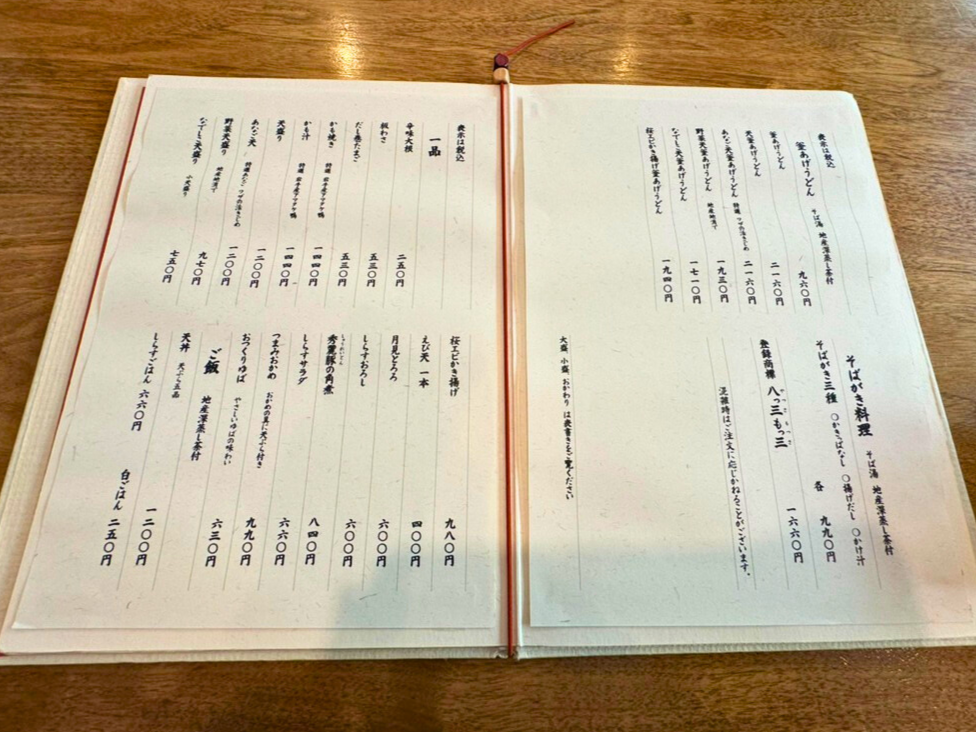 表示は税込
釜あげうどん そば湯 地産深蒸し茶付
釜あげうどん 九六〇円
天釜あげうどん 二一六〇円
あなご天釜あげうどん 特選 ツマの活きじめ 二一六〇円
野菜天釜あげうどん 地産地消で 一九三〇円
なでしこ天釜あげうどん 一七一〇円
桜エビかき揚げ釜あげうどん 一九四〇円
そばがき料理 そば湯 地産深蒸し茶付
そばがき三種 〇かきっぱなし 〇揚げだし 〇かけ汁
各 九九〇円
登録商標 八っ三もっ三 一六六〇円
混雑時はご注文に応じかねることがございます。
大盛 小盛 おかわり は表書きをご覧ください
表示は税込
一品
辛味大根 二五〇円
板わさ 五三〇円
だし巻たまご 五三〇円
かも焼き 特選 岩手産アマタケ鴨 一四四〇円
かも汁 特選 岩手産アマタケ鴨 一四四〇円
天盛り 一二〇〇円
あなご天 ツマの活きじめ 一二〇〇円
野菜天盛り 地産地消で 九七〇円
なでしこ天盛り 小天盛り 七五〇円
桜エビかき揚げ 九八〇円
えび天 一本 四〇〇円
月見とろろ 六〇〇円
しらすおろし 六〇〇円
秀麗豚の角煮 八四〇円
しらすサラダ 六六〇円
つまみおかめ おかめの具に天ぷら付き 九九〇円
おつくりゆば やさしいゆばの味わい 六三〇円
ご飯 地産深蒸し茶付
天丼 天ぷら五品 一二〇〇円
しらすごはん 六六〇円 白ごはん 二五〇円